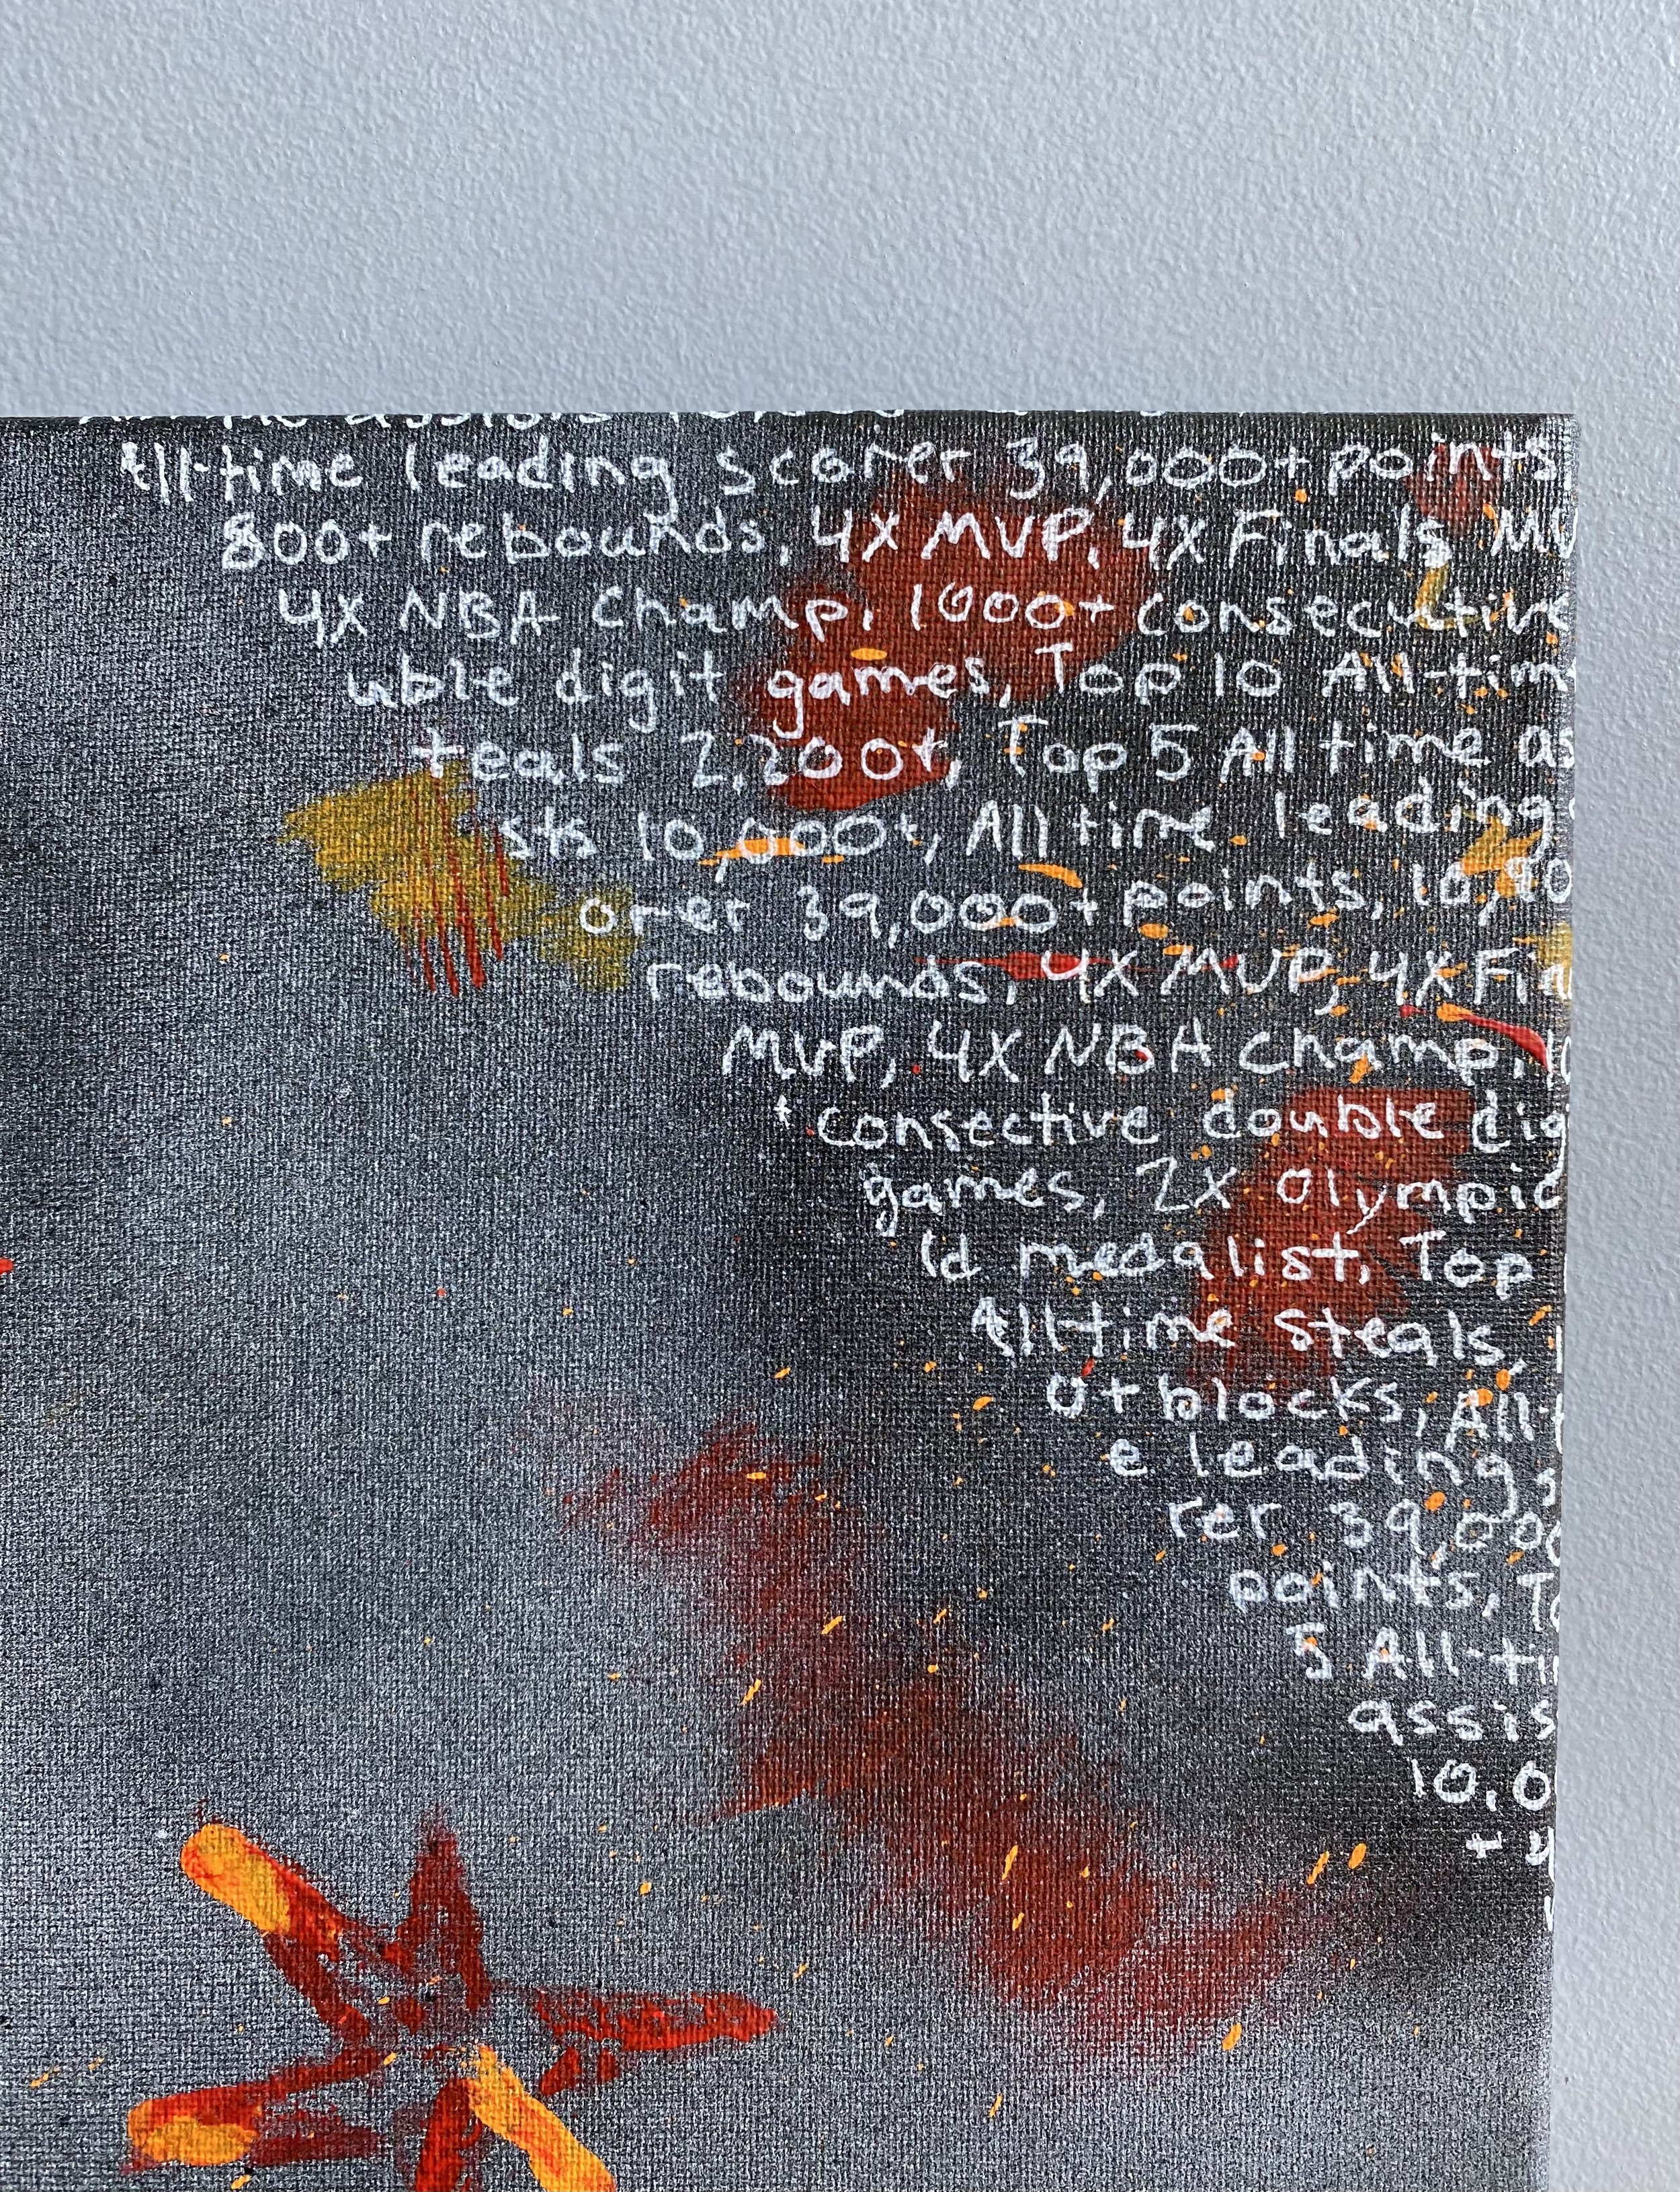 All-time leading scorer 39,000+ points
800+ rebounds, 4X MVP, 4X Finals MV
4X NBA Champ, 1000+ consecutive
uble digit games, Top 10 All-time
teals 2,200+, Top 5 All time as
sts 10,000+, All time leading
orer 39,000+ points, 10,80
rebounds, 4X MVP, 4X Fin
MVP, 4X NBA Champ,
+ consective double dig
games, 2X Olympic
ld medalist, Top
All-time steals,
0+ blocks, All-t
e leading s
rer 39,000
points, To
5 All-ti
assis
10,0
+ 4